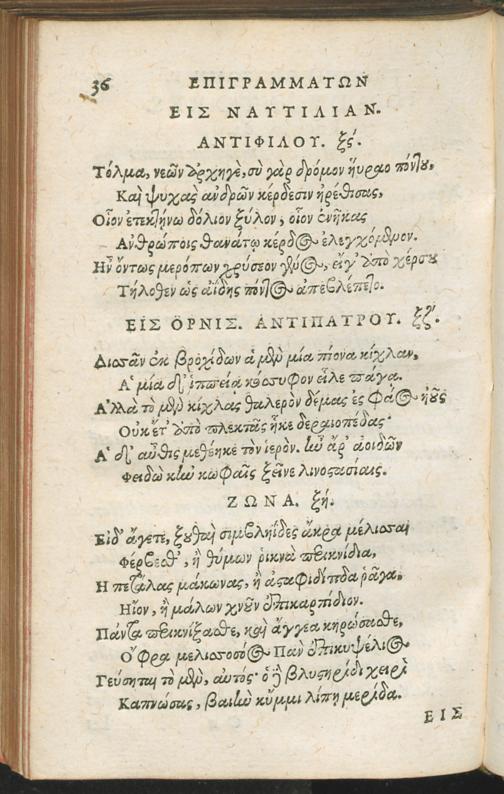 36
ΕΠΙΓΡΑΜΜΑΤΩΝ
ΕΙΣ ΝΑΥΤΙΛΙΑΝ.
ΑΝΤΙΦΙΛΟΥ. ξϛ́.
Τόλμα, νεῶν ἀρχηγὲ, σὺ γὰρ δρόμον ηὕραο πόντου,
Καὶ ψυχὰς ἀνδρῶν κέρδεσιν ἠρέθισας,
Οἷον ἐτεκτήνω δόλιον ξύλον, οἷον ἐνῆκας
Ἀνθρώποις θανάτῳ κέρδος ἐλεγχόμενον.
Ἦν ὄντως μερόπων χρύσεον γένος, εἴγ' ἀπὸ χέρσου
Τηλόθεν ὡς ἀΐδης πόντος ἀπεβλέπετο.
ΕΙΣ ΟΡΝΙΣ. ΑΝΤΙΠΑΤΡΟΥ. ξζ́.
Δισσᾶν ἐκ βροχίδων ἁ μὲν μία πίονα κίχλαν,
Ἁ μία δ' ἱππείᾳ κόσσυφον εἷλε πάγᾳ.
Ἀλλὰ τὸ μὲν κίχλας θαλερὸν δέμας ἐς φάος ἠοῦς
Οὐκ ἔτ' ἀπὸ πλεκτᾶς ἧκε δεραιοπέδας·
Ἁ δ' αὖθις μεθέηκε τὸν ἱερόν. ἦν ἄρ' ἀοιδῶν
Φειδὼ κἠν κωφαῖς ξεῖνε λινοστασίαις.
ΖΩΝΑ. ξή.
Εἰδ' ἄγετε, ξουθαὶ σιμβληΐδες ἄκρα μέλισσαι
Φέρβεσθ', ἢ θύμων ῥικνὰ περικνίδια,
Ἢ πετάλας μάκωνας, ἢ ἀσταφιδίτιδα ῥᾶγα,
Ἢ ἴον, ἢ μάλων χνοῦν ἐπικαρπίδιον.
Πάντα περικνίξασθε, καὶ ἄγγεα κηρώσασθε,
Ὄφρα μελισσοσόος Πὰν ἐπικυψέλιος
Γεύσηται τὸ μὲν, αὐτός· ὁ δὲ βλυστηρίδι χειρὶ
Καπνώσας, βαιὴν κὔμμι λίπῃ μερίδα.
ΕΙΣ